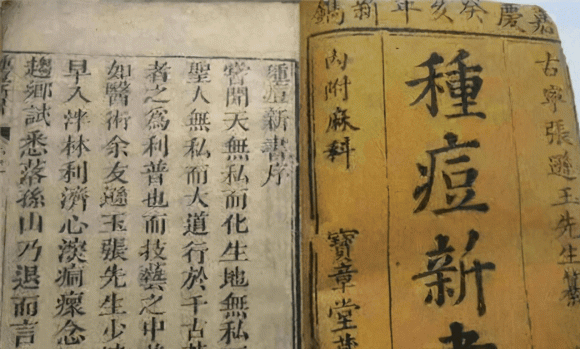 嘉慶癸亥年新鐫
古寧張遜玉先生纂
種痘新書
內附麻科
寶章堂藏
種痘新書序
嘗聞天無私而化生地無私而
聖人無私而大道行於千古
者之為利普也而技藝之中
如醫術余友遜玉張先生少
早入泮林利濟心深痌瘝念
趨鄉試悉落孫山乃退而言